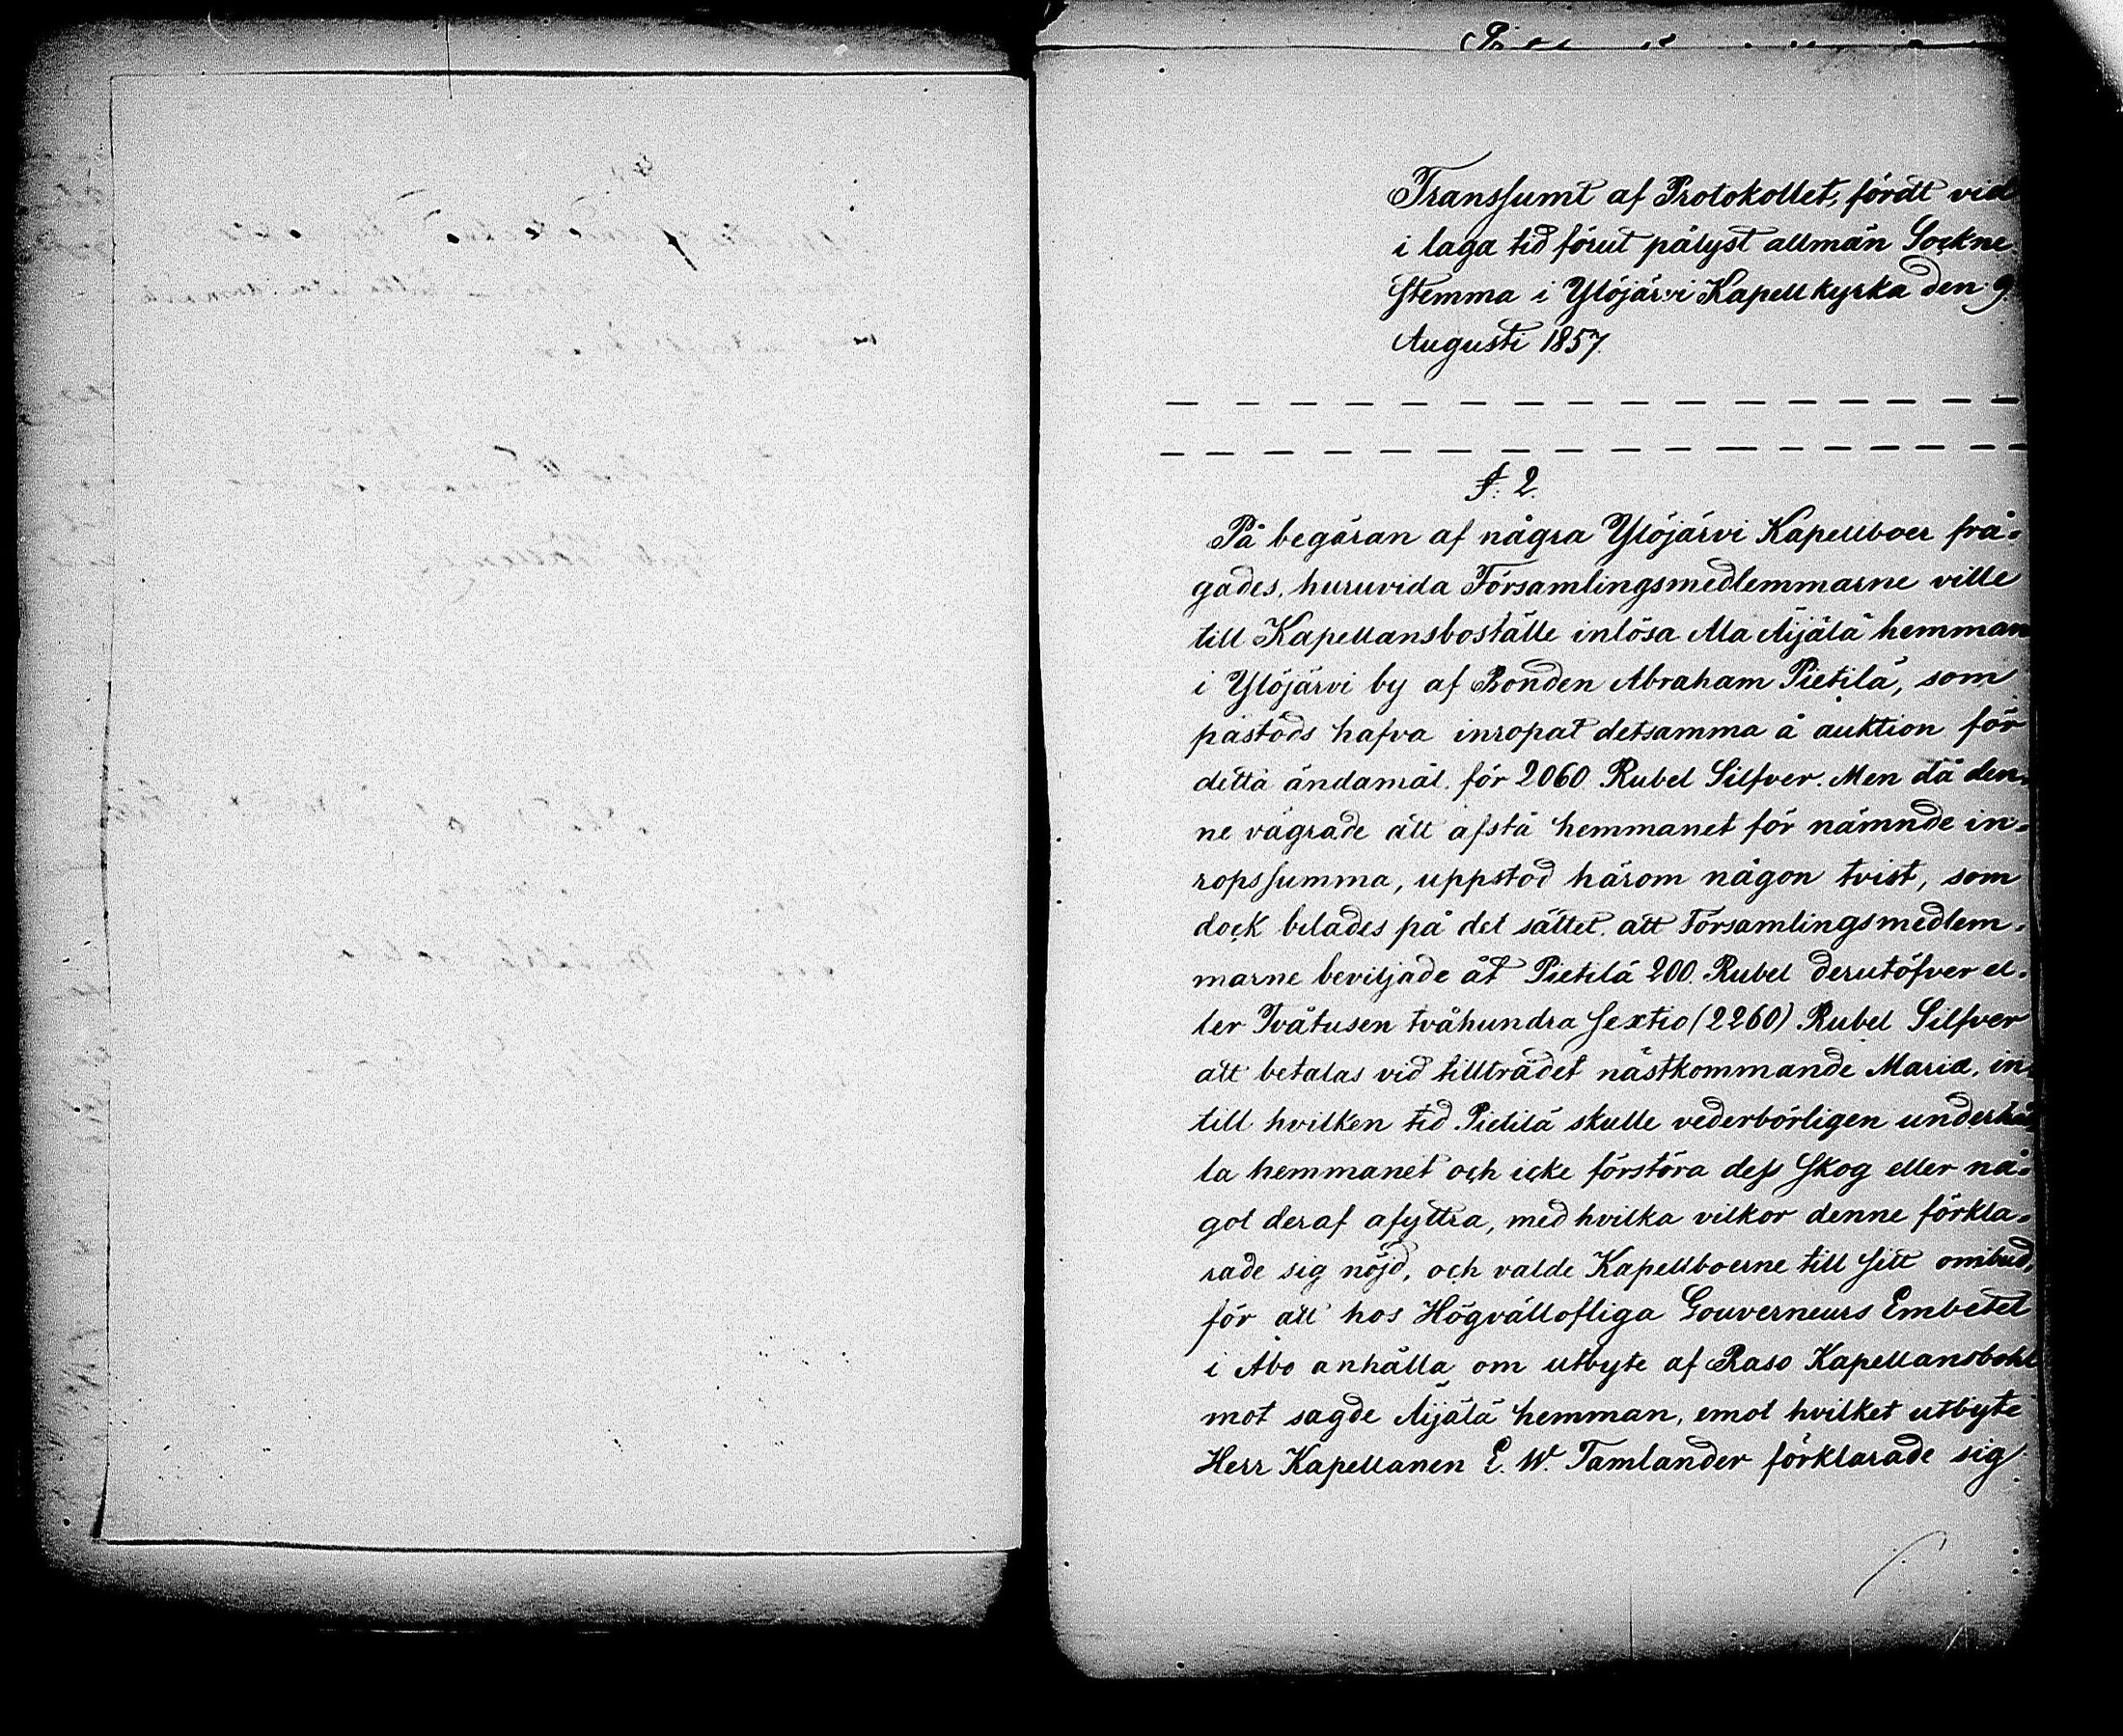 Transsumt af Protokollet, fördt vid
i laga tid förut pålyst allmän Sockne
stemma i Ylöjärvi Kapellkyrka den 9.
Augusti 1857.
§. 2.
På begäran af några Ylöjärvi Kapellboer frå-
gades, huruvida Församlingsmedlemmarne ville
till Kapellansboställe inlösa Ala Äijälä hemman
i Ylöjärvi by af Bonden Abraham Pietilä, som
påstods hafva inropat detsamma å auktion för
detta ändamål, för 2060 Rubel Silfver. Men då den-
ne vägrade att afstå hemmanet för nämnde in-
ropssumma, uppstod härom någon tvist, som
dock bilades på det sättet, att Församlingsmedlem-
marne beviljade åt Pietilä 200. Rubel derutöfver el-
ler Tvåtusen tvåhundra sextio (2260) Rubel Silfver
att betalas vid tillträdet nästkommande Mariæ, in-
till hvilken tid Pietilä skulle vederbörligen underhå-
la hemmanet och icke förstöra dess skog eller nå-
got deraf afyttra, med hvilka vilkor denne förkla-
rade sig nöjd, och valde Kapellboerne till sitt ombud,
för att hos Högvällofliga Gouverneurs Embetet
i Åbo anhålla om utbyte af Raso Kapellansbohl
mot sagde Äijälä hemman, emot hvilket utbyte
Herr Kapellanen E. W. Tamlander förklarade sig